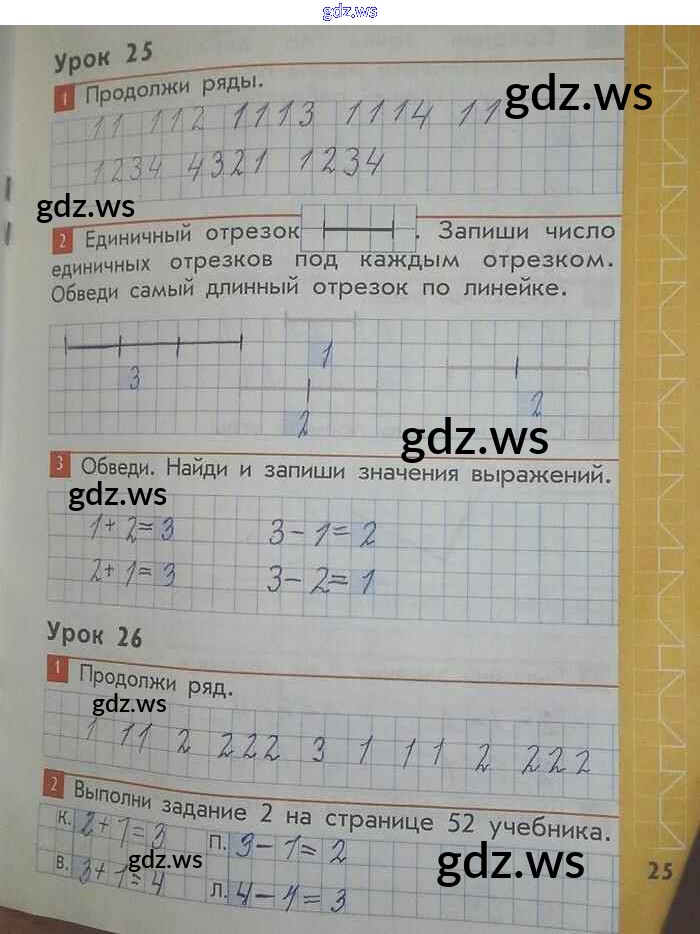 gdz.ws
Урок 25
1 Продолжи ряды.
gdz.ws
11 112 1113 1114 11
1234 4321 1234
gdz.ws
2 Единичный отрезок . Запиши число
единичных отрезков под каждым отрезком.
Обведи самый длинный отрезок по линейке.
1
3
2 2
gdz.ws
3 Обведи. Найди и запиши значения выражений.
gdz.ws
1+2=3 3-1=2
2+1=3 3-2=1
Урок 26
1 Продолжи ряд.
gdz.ws
1 11 2 222 3 1 11 2 222
2 Выполни задание 2 на странице 52 учебника.
К. 2+1=3 П. 3-1=2
gdz.ws gdz.ws
В. 3+1=4 Л. 4-1=3
25